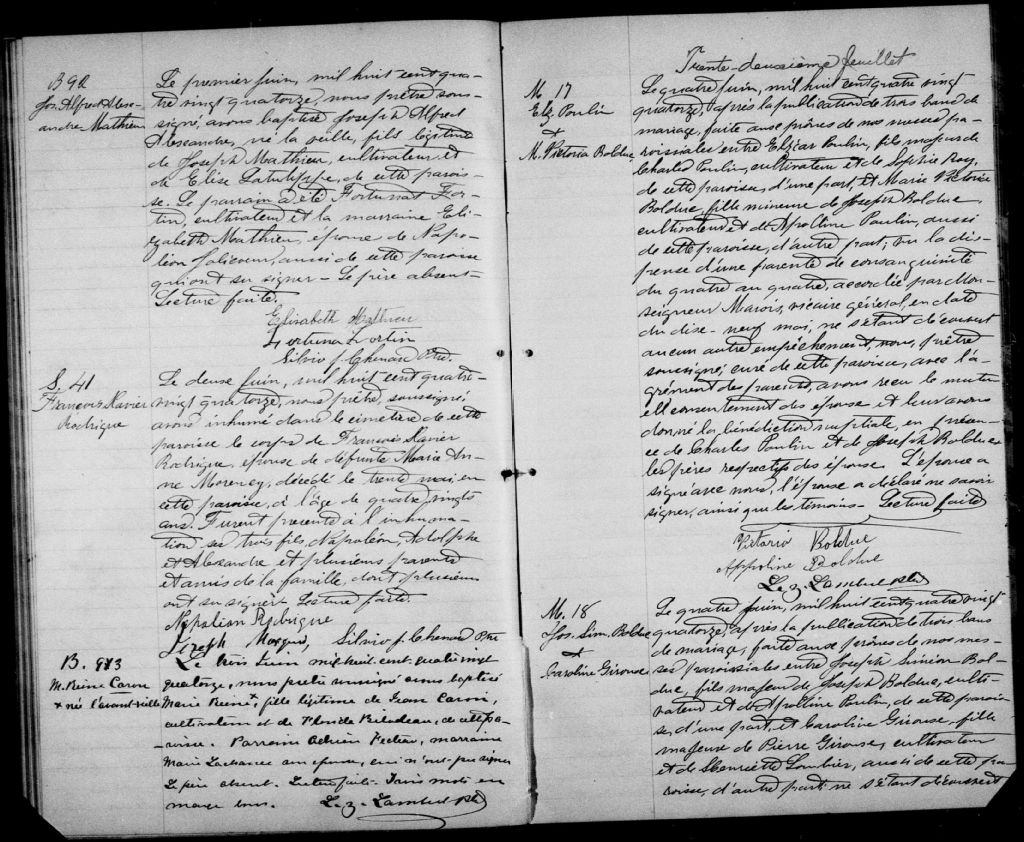 B 92
Jos. Alfred Alex-
andre Mathieu
Le premier juin, mil huit cent qua-
tre vingt quatorze, nous prêtre sous-
signé, avons baptisé Joseph Alfred
Alexandre, né la veille, fils légitime
de Joseph Mathieu, cultivateur, et
de Elise Latulippe, de cette parois-
se. Le parrain a été Fortunat For-
tin, cultivateur et la marraine Eli-
zabeth Mathieu, épouse de Napo-
léon Jolicoeur, aussi de cette paroisse
qui ont su signer. Le père absent.
Lecture faite.
Elisabeth Mathieu
Fortuna Fortin
Silvio J. Chenard Ptre.
S. 41
François Xavier
Rodrigue
Le deuxe juin, mil huit cent quatre-
vingt quatorze, nous prêtre, soussigné,
avons inhumé dans le cimetière de cette
paroisse le corps de François Xavier
Rodrigue, épouse de défunte Marie An-
ne Morency, décédé le trente mai en
cette paroisse, à l'âge de quatre vingts
ans. Furent présents à l'inhuma-
tion ses trois fils, Napoléon, Adolphe
et Alexandre et plusieurs parents
et amis de la famille, dont plusieurs
ont su signer. Lecture faite.
Napolian Rodrigue
Joseph Silvio J. Chenard Ptre
B. 93
M. Reine Caron
x née l'avant-veille
Le trois Juin mil huit cent quatre vingt
quatorze, nous prêtre soussigné avons baptisé
Marie Reine x, fille légitime de Jean Caron,
cultivateur et de Bilodeau, de cette pa-
roisse. Parrain Adrien marraine
Marie Lachance son épouse, qui n'ont pu signer
Le père absent. Lecture faite. Trois mots en
marge bons. L. Z. Lambert Ptre
Trente-deuxième feuillet
M. 17
Elz. Poulin
&
M. Victoria Bolduc
Le quatre juin, mil huit cent quatre vingt
quatorze, après la publication de trois bans de
mariage, faite aux prônes de nos messes pa-
roissiales entre Elzéar Poulin, fils majeur de
Charles Poulin, cultivateur et de Sophie Roy,
de cette paroisse, d'une part, et Marie Victoria
Bolduc, fille mineure de Joseph Bolduc,
cultivateur et de Apolline Poulin, aussi
de cette paroisse, d'autre part; vu la dis-
pense d'une parenté de consanguinité
du quatre au quatre, accordée par Mon-
seigneur Marois, vicaire général, en date
du dixe-neuf mai, ne s'étant découvert
aucun autre empêchement, nous, prêtre
soussigné, curé de cette paroisse, avec l'a-
grément des parents, avons reçu le mutu-
ell consentement des époux et leur avons
donné la bénédiction nuptiale, en présen-
ce de Charles Poulin et de Joseph Bolduc
les pères respectifs des époux. L'épouse a
signé avec nous, l'époux a déclaré ne savoir
signer, ainsi que les témoins. Lecture faite
Victoria Bolduc
Appoline Bolduc
L. Z. Lambert Ptre
M. 18
Jos. Sim. Bolduc
&
Caroline Girouse
Le quatre juin, mil huit cent quatre vingt
quatorze, après la publication de trois bans
de mariage, faite aux prônes de nos mes-
ses paroissiales entre Joseph Siméon Bol-
duc, fils majeur de Joseph Bolduc, culti-
vateur et de Apolline Poulin, de cette parois-
se, d'une part, et Caroline Girouse, fille
majeure de Pierre Girouse, cultivateur
et de Henriette aussi de cette pa-
roisse, d'autre part; ne s'étant découvert